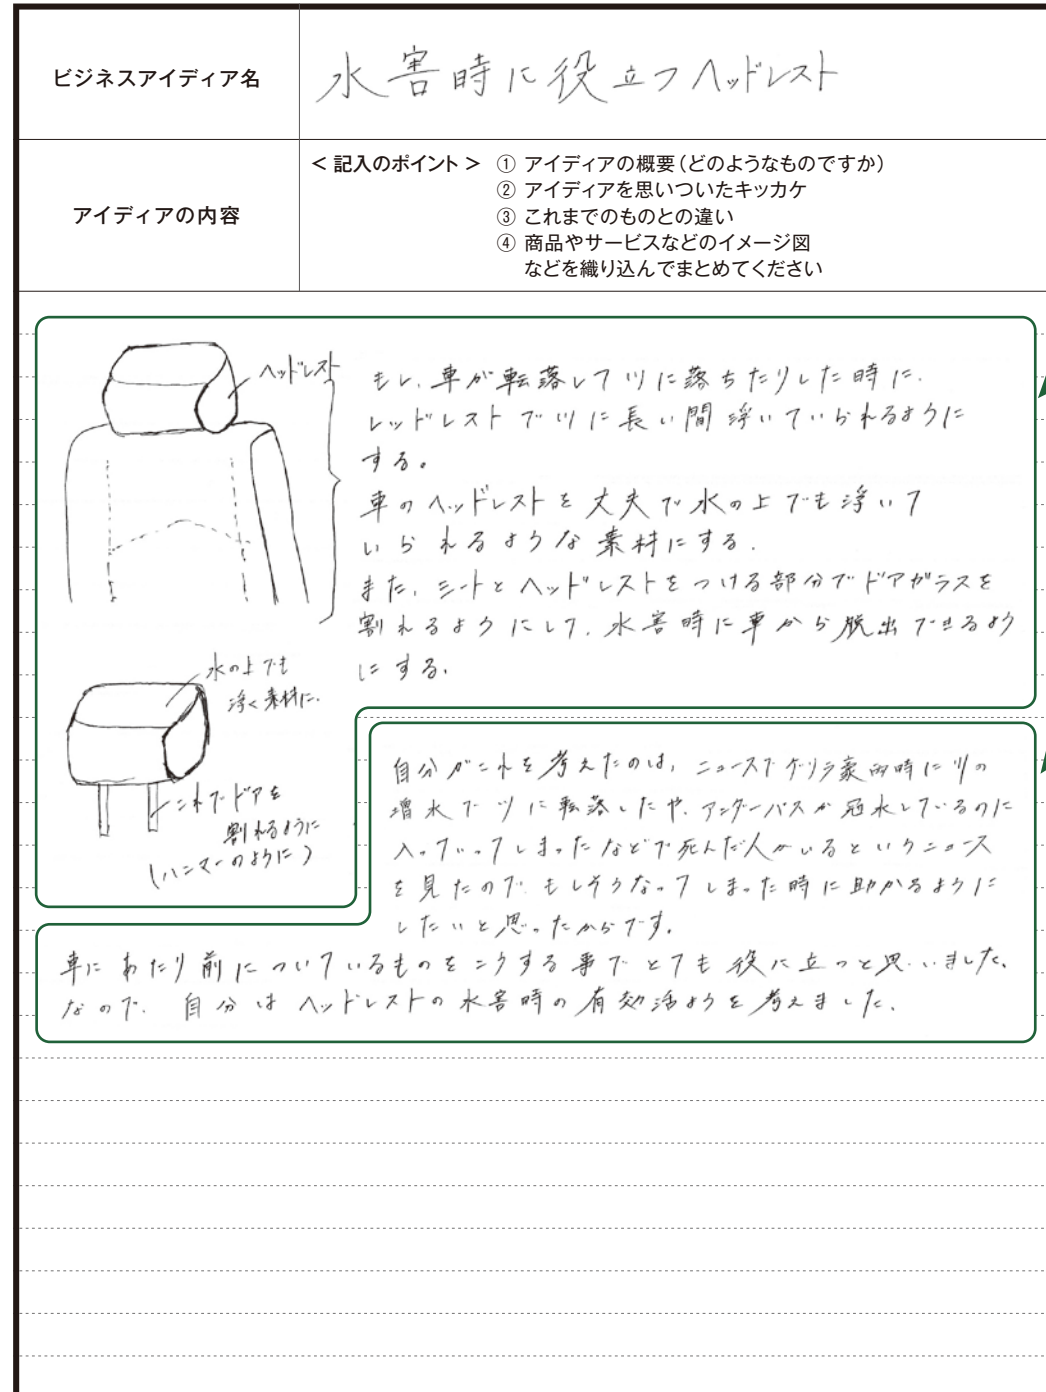 ビジネスアイディア名
水害時に役立つヘッドレスト
アイディアの内容
＜記入のポイント＞ ① アイディアの概要（どのようなものですか）
② アイディアを思いついたキッカケ
③ これまでのものとの違い
④ 商品やサービスなどのイメージ図
などを織り込んでまとめてください
ヘッドレスト
もし、車が転落して川に落ちたりした時に、
レッドレストで川に長い間浮いていられるように
する。
車のヘッドレストを丈夫で水の上でも浮いて
いられるような素材にする。
また、シートとヘッドレストをつける部分でドアガラスを
割れるようにして、水害時に車から脱出できるよう
にする。
水の上でも
浮く素材に。
これでドアを
割れるように
(ハンマーのように)
自分がこれを考えたのは、ニュースでゲリラ豪雨時に川の
増水で川に転落したや、アンダーパスが冠水しているのに
入っていってしまったなどで死んだ人がいるというニュース
を見たので、もしそうなってしまった時に助かるように
したいと思ったからです。
車にあたり前についているものをこうする事でとても役に立つと思いました。
なので、自分はヘッドレストの水害時の有効活ようを考えました。